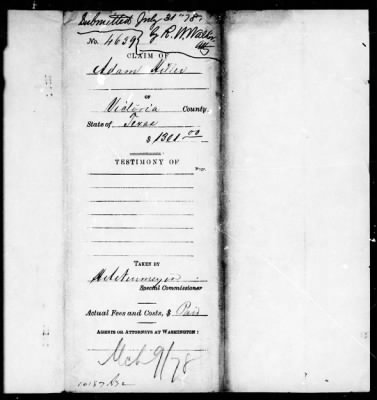 Submitted July 31st '78
by R. W. Walker
Atty
No. 4639
CLAIM OF
Adam
OF
Victoria County
State of Texas
$ 1301 00
TESTIMONY OF
Page.
TAKEN BY
Special Commissioner
Actual Fees and Costs, $ Paid
AGENTS OR ATTORNEYS AT WASHINGTON:
Mch 9/78